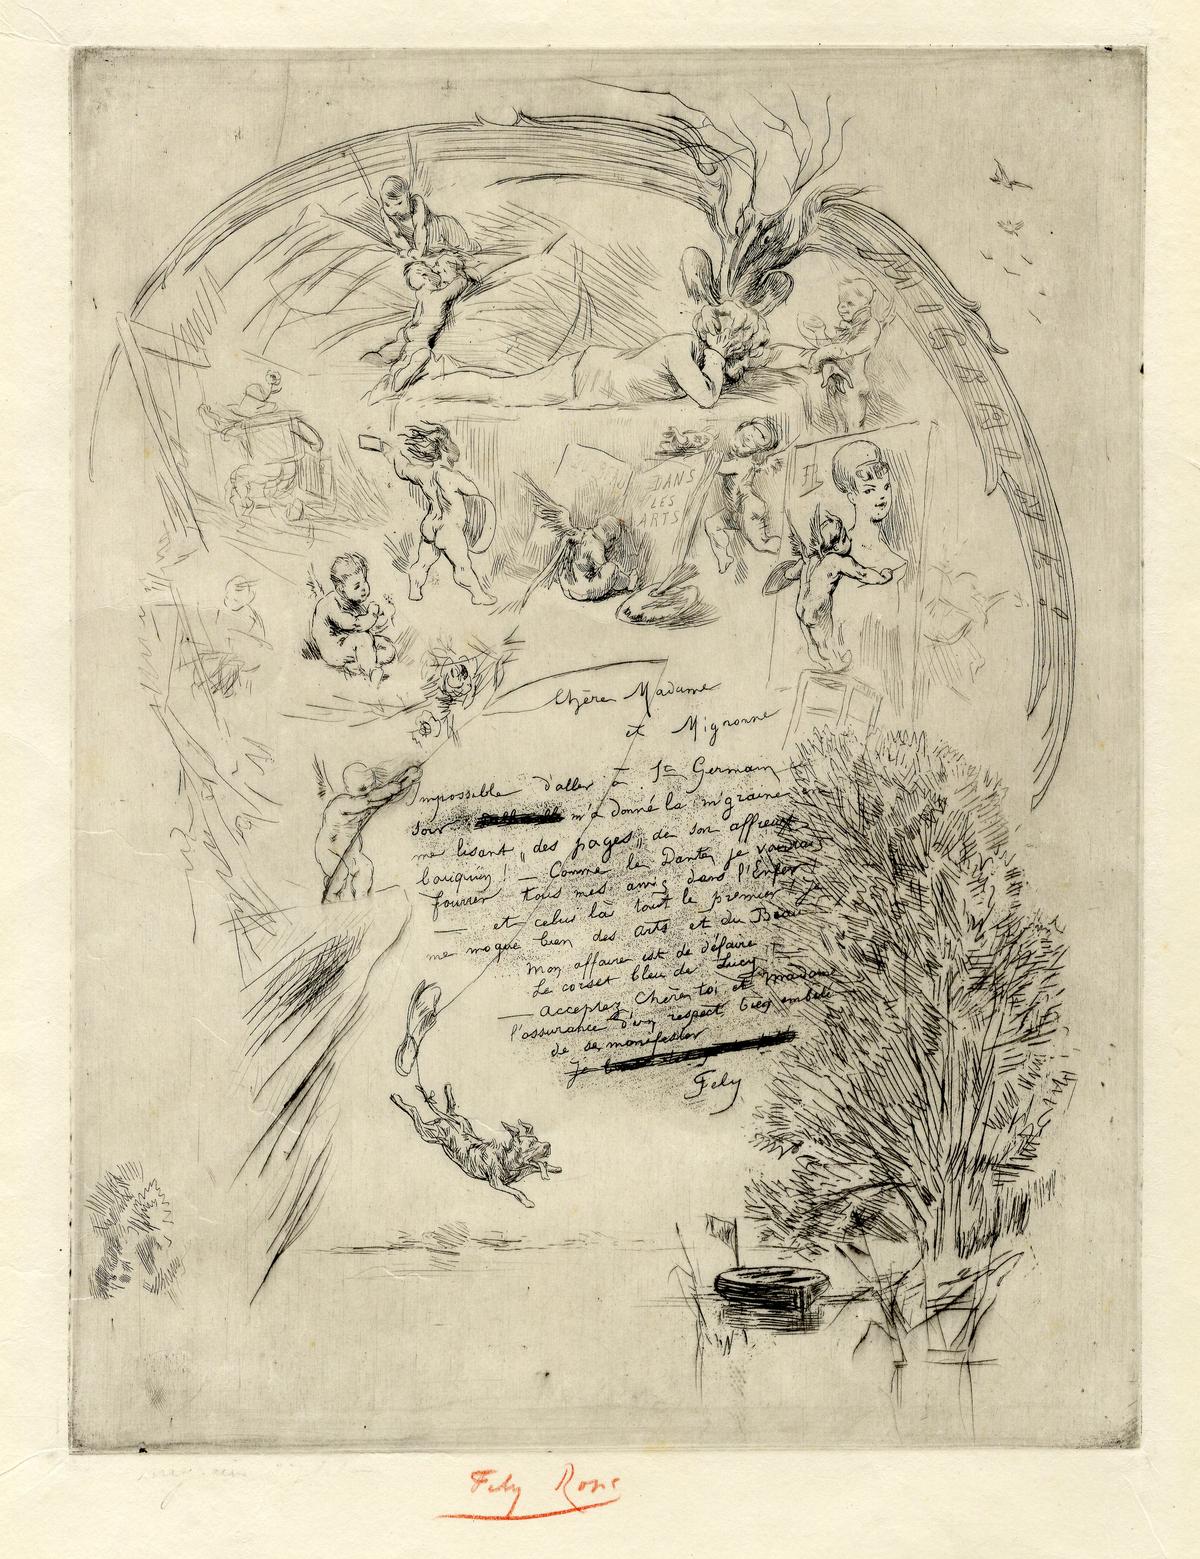 MIGRAINE!
DANS
LES
ARTS
Chère Madame
et Mignonne
Impossible d'aller à St Germain
soir m'a donné la migraine
me lisant „des pages„ de son affreux
bouquin! — Comme le Dante, je voudrais
fourrer tous mes amis dans l'Enfer
— et celui là tout le premier. Je
me moque bien des Arts et du Beau
Mon affaire est de défaire
Le corset bleu de Lucy —
— Acceptez, Chère, toi et Madame
l'assurance d'un respect bien embêté
de se manifester
Je
Fély
Fély Rops